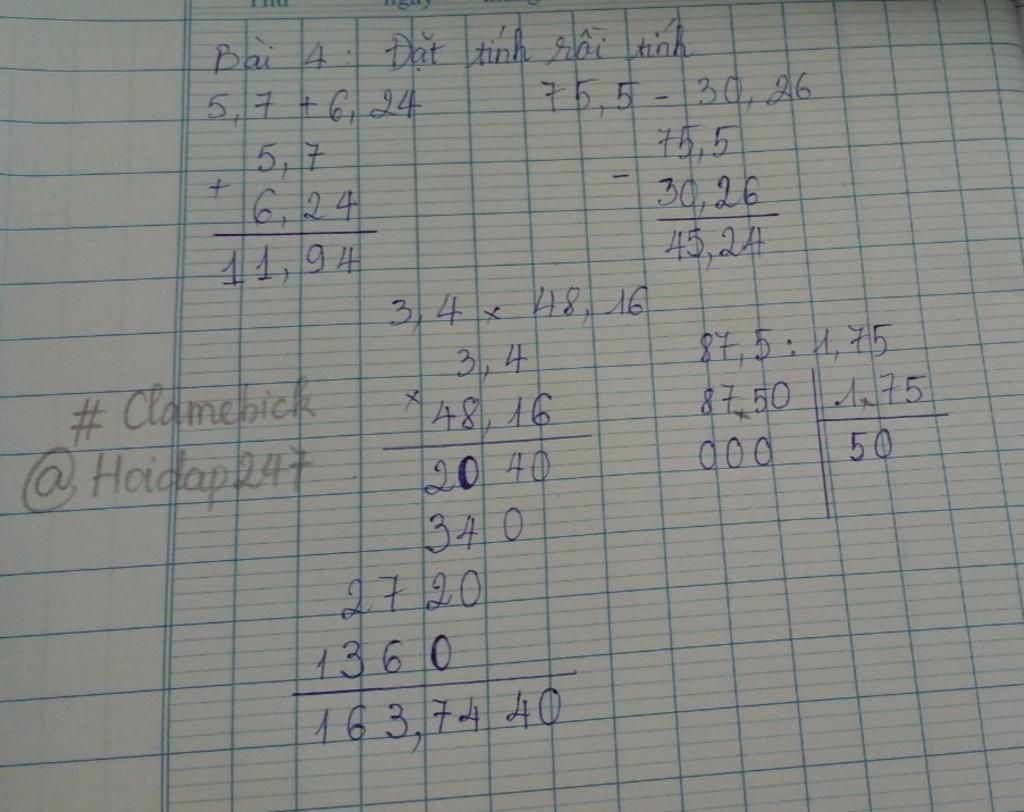 Bài 4: Đặt tính rồi tính
5,7 + 6,24
75,5 - 30,26
5,7
+
6,24
11,94
75,5
-
30,26
45,24
3,4 × 48,16
3,4
×
48,16
20 40
34 0
2 7 20
1 3 6 0
1 6 3,74 40
87,5 : 1,75
87,50 1,75
000 50
# Clamebick
@Hoidap247